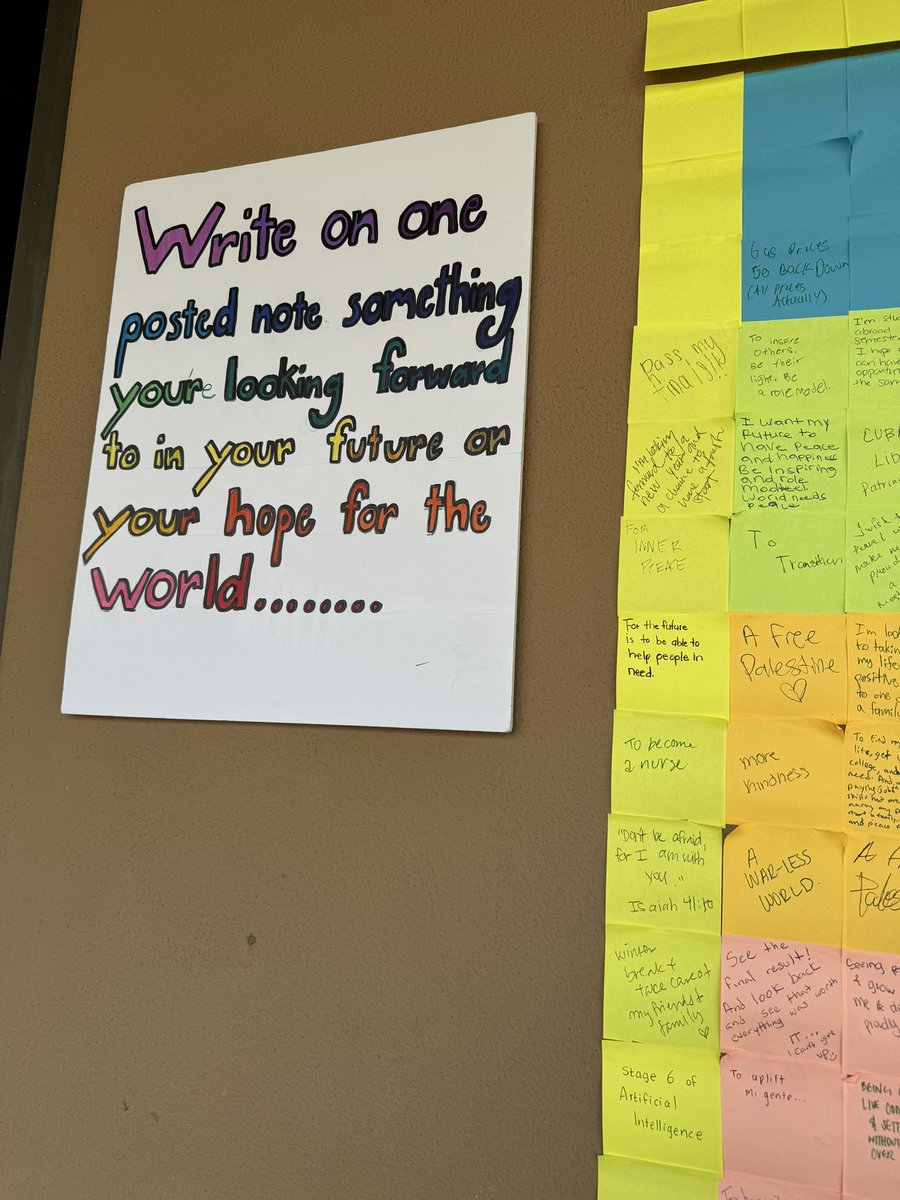 Write on one
posted note something
you're looking forward
to in your future or
your hope for the
world........
Gas Prices
Go Back Down
(All prices
Actually)
Pass my
finals!!!
To inspire
others.
Be their
light. Be
a role model.
I'm
abroad
I hope
can have
the
I'm looking
forward to a
new year and
a chance to
have a fresh
start
I want my
future to
have peace
and happiness
Be Inspiring
and role
model
world needs
peace.
FOR
INNER
PEACE
To
Transition
I wish
make
For the future
is to be able to
help people in
need.
A Free
Palestine
I'm
to
my life
positive
to one
a family
To become
a nurse
more
kindness
To find my
life, get
college, and
need. And
skills that
marry my
and peace
"Don't be afraid,
for I am with
you."
Isaiah 41:10
A
WAR-LESS
WORLD.
A
winter
break &
take care of
my friends &
family
See the
final result!
And look back
and see that
everything was worth
IT...
I can't give
up
Seeing
& grow
me &
proudly
Stage 6 of
Artificial
Intelligence
To uplift
mi gente...
BEING
LIVE
&
WITHOUT
OVER